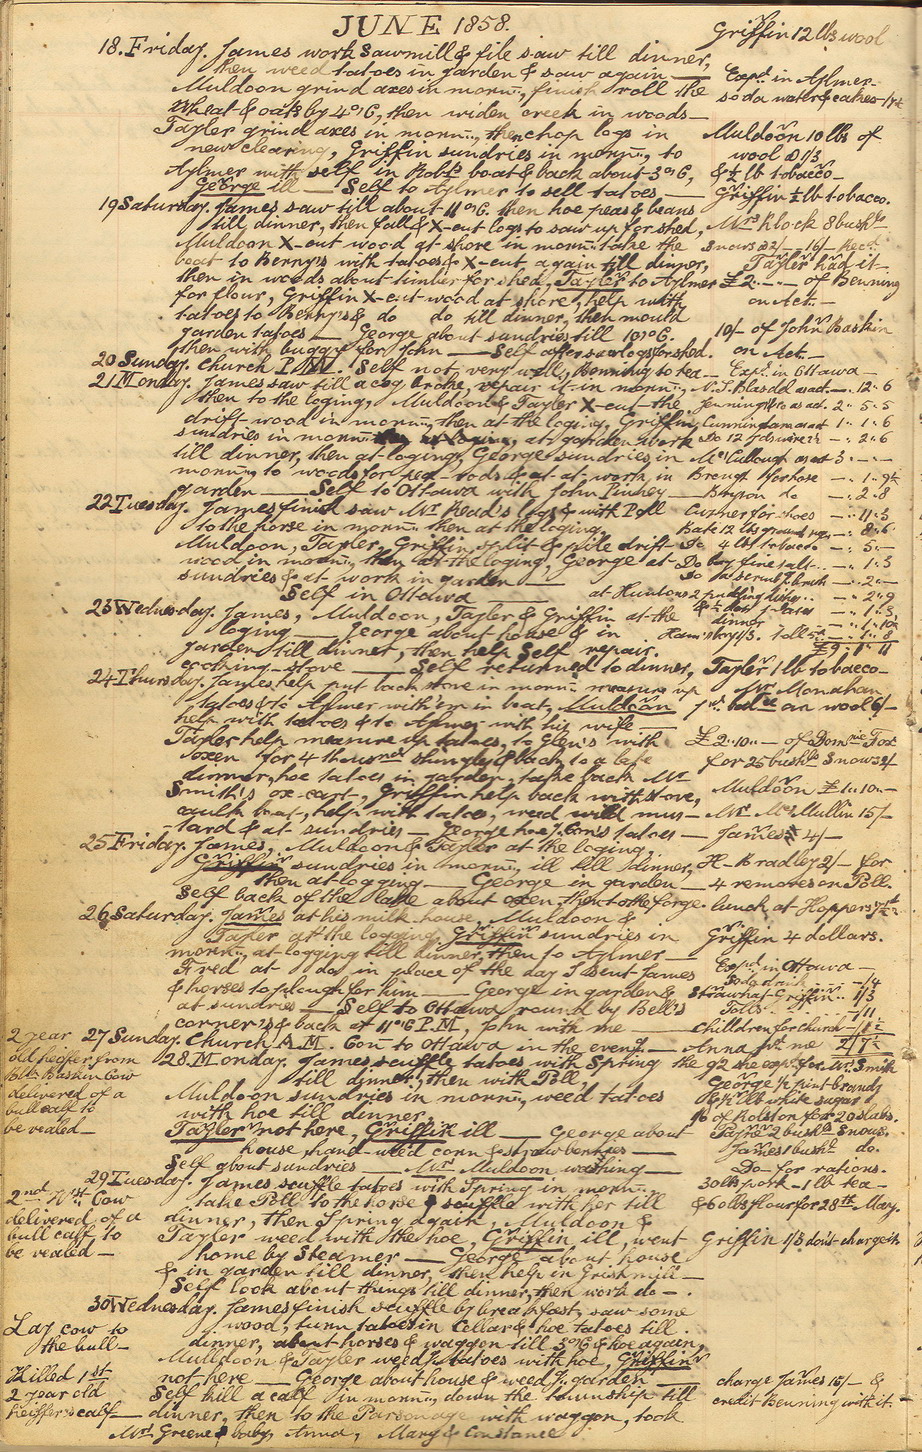 JUNE 1858.
Griffin 12 lbs wool
18. Friday. James work Sawmill & file saw till dinner,
then weed tatoes in garden & saw again —
Muldoon grind axes in morn:, finish roll the
Wheat & oats by 4 o'C, then widen creek in woods —
Tayler grind axes in morn:, then chop logs in
new clearing, Griffin sundries in morn:, to
Aylmer with self in Rob's boat & back about 3 o'C,
George ill — Self to Aylmer to sell tatoes —
Exp. in Aylmer
soda water & cakes
Muldoon 10 lbs of
wool @ 1/3
& ½ lb tobacco —
Griffin ½ lb tobacco.
19 Saturday. James saw till about 11 o'C. then hoe peas & beans
till dinner, then fall & X-cut logs to saw up for shed,
Muldoon X-cut wood at shore in morn: take the
boat to Berry's with tatoes & X-cut again till dinner,
then in woods about timber for shed, Tayler to Aylmer
for flour, Griffin X-cut wood at shore, help with
tatoes to Berry's & do do till dinner, then mould
garden tatoes — George about sundries till 10 o'C.
then with buggy for John — Self after saw logs for shed.
Mrs Klock 8 bush
Snows @ 2/- 16/-
Tayler had it —
£2 - - of Benning
on Act. —
10/- of John Baskin
on Act. —
20 Sunday. Church P.M. Self not very well, Benning to tea —
Exp. in Ottawa —
21 Monday. James saw till a cog broke, repair it in morn:,
then to the loging, Muldoon & Tayler X-cut the
drift-wood in morn:, then at the loging, Griffin
sundries in morn: at garden work
till dinner, then at loging, George sundries in
morn:, to woods for pea-rods & at work in
garden — Self to Ottawa with John Pinhey —
12 " 6
2 " 5 " 5
Cunningham as act 1 " 1 " 6
2 " 6
McCullough as act 3 " — " —
Bryson do — " 2 " 8
22 Tuesday. James finish saw Mr Read's logs & with Poll
to the horse in morn: then at the loging
Muldoon, Tayler, Griffin, split & pile drift-
wood in morn:, then at the loging, George at
sundries & at work in garden —
Self in Ottawa —
for shoes — " 11 " 3
8 " 6
Do 4 lbs tobacco — " 5 " —
Do bag fine salt — " 1 " 3
Do a scrub. brush — " 2 " —
at Huntons 2 pudding dishes " 2 " 9
dinner — " 1 " 10½
23 Wednesday. James, Muldoon, Tayler & Griffin at the
loging — George about house & in
garden till dinner, then help Self repair
cooking-stove — Self returned to dinner,
Tayler 1 lb tobacco —
24 Thursday. James help put back stove in morn: measure up
tatoes & to Aylmer with 'em in boat, Muldoon
help with tatoes & to Aylmer with his wife —
Tayler help measure up tatoes, to Glen's with
oxen for 4 thousnd shingles & back to a late
dinner, hoe tatoes in garden, take back Mr
Smith's ox-cart, Griffin help back with stove,
caulk boat, help with tatoes, weed wild mus-
tard & at sundries — George hoe J. Con's tatoes —
Mr Monahan
pd. balce on wool 6/-
£2 " 10 " — of Domnic Fox
for 25 bushls Snows 2/-
Muldoon £1 " 10 " —
Mr McMullin 15/-
James 4/-
25 Friday. James, Muldoon & Tayler at the loging,
Griffin sundries in morn:, ill till dinner,
then at logging — George in garden —
Self back of the lake about oxen, then to the forge.
H- Bradley 2/- for
4 removes on Poll.
lunch at Hoppers
26 Saturday. James at his milk house, Muldoon &
Tayler at the logging, Griffin sundries in
morn:, at logging till dinner, then to Aylmer —
Fred at do in place of the day I sent James
& horses to plough for him — George in garden &
at sundries — Self to Ottawa round by Bell's
corner's & back at 11 o'C P.M, John with me —
Griffin 4 dollars.
Exp. in Ottawa —
Soda drink — 1/4
Straw hat Griffin 1/3
Tolls
children for church
27 Sunday. Church A.M. Con to Ottawa in the event —
28. Monday. James scuffle tatoes with Spring the
till dinner, then with Poll,
Muldoon sundries in morn:, weed tatoes
with hoe till dinner,
Tayler not here, Griffin ill — George about
house, hand-weed corn & straw berries —
Self about sundries — Mrs Muldoon washing —
92 the exp. for Mr. Smith
George ½ pint brandy
lb white sugar
of Holston for 20 slabs.
Tayler 2 bushls Snows.
James 1 bushl do.
Do — for rations.
30 lbs pork — 1 lb tea —
& 60 lbs flour for 28th May.
2 year
old heefer from
John Baskin Cow
delivered of a
bull calf to
be vealed —
29 Tuesday. James scuffle tatoes with Spring in morn:
take Poll to the horse & scuffle with her till
dinner, then Spring again, Muldoon &
Tayler weed with the hoe, Griffin ill, went
home by Steamer — George about house
& in garden till dinner, then help in Gristmill —
Self look about things till dinner, then work do —.
Griffin 1/3 don't charge it
2nd Cow
delivered of a
bull calf to
be vealed —
30 Wednesday. James finish scuffle by breakfast, saw some
wood, turn tatoes in Cellar & hoe tatoes till
dinner, about horses & waggon till 3 o'C & hoe again,
Muldoon & Tayler weed J. tatoes with hoe, Griffin
not here — George about house & weed J. garden —
Self kill a calf in morn:, down the township till
dinner, then to the Parsonage with waggon, took
Mrs Greene & baby, Anna, Mary & Constance
charge James 15/- &
credit Benning with it.
Lay cow to
the bull —
Killed 1st
2 year old
heiffers calf —